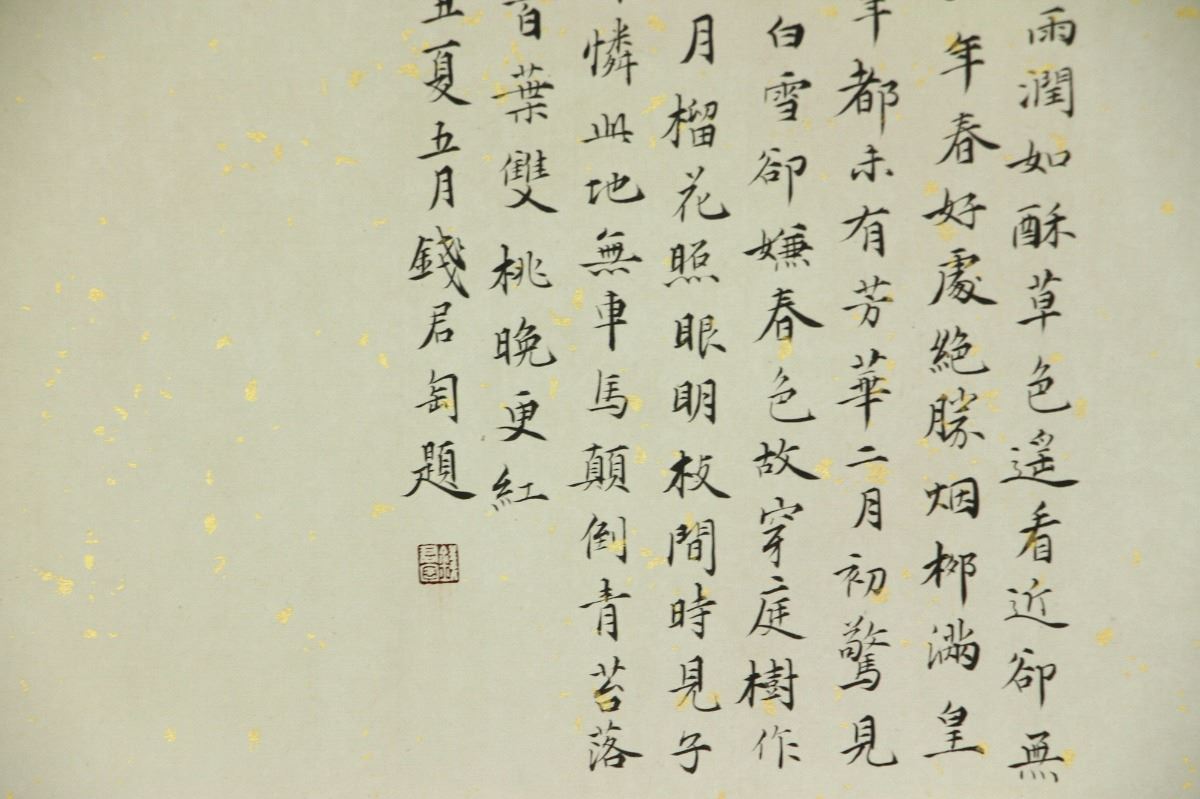 雨潤如酥草色遥看近卻無
年春好處絕勝烟柳滿皇
年都未有芳華二月初驚見
白雪卻嫌春色故穿庭樹作
月榴花照眼明枝間時見子
憐此地無車馬顛倒青苔落
百葉雙桃晚更紅
丑夏五月錢君匋題